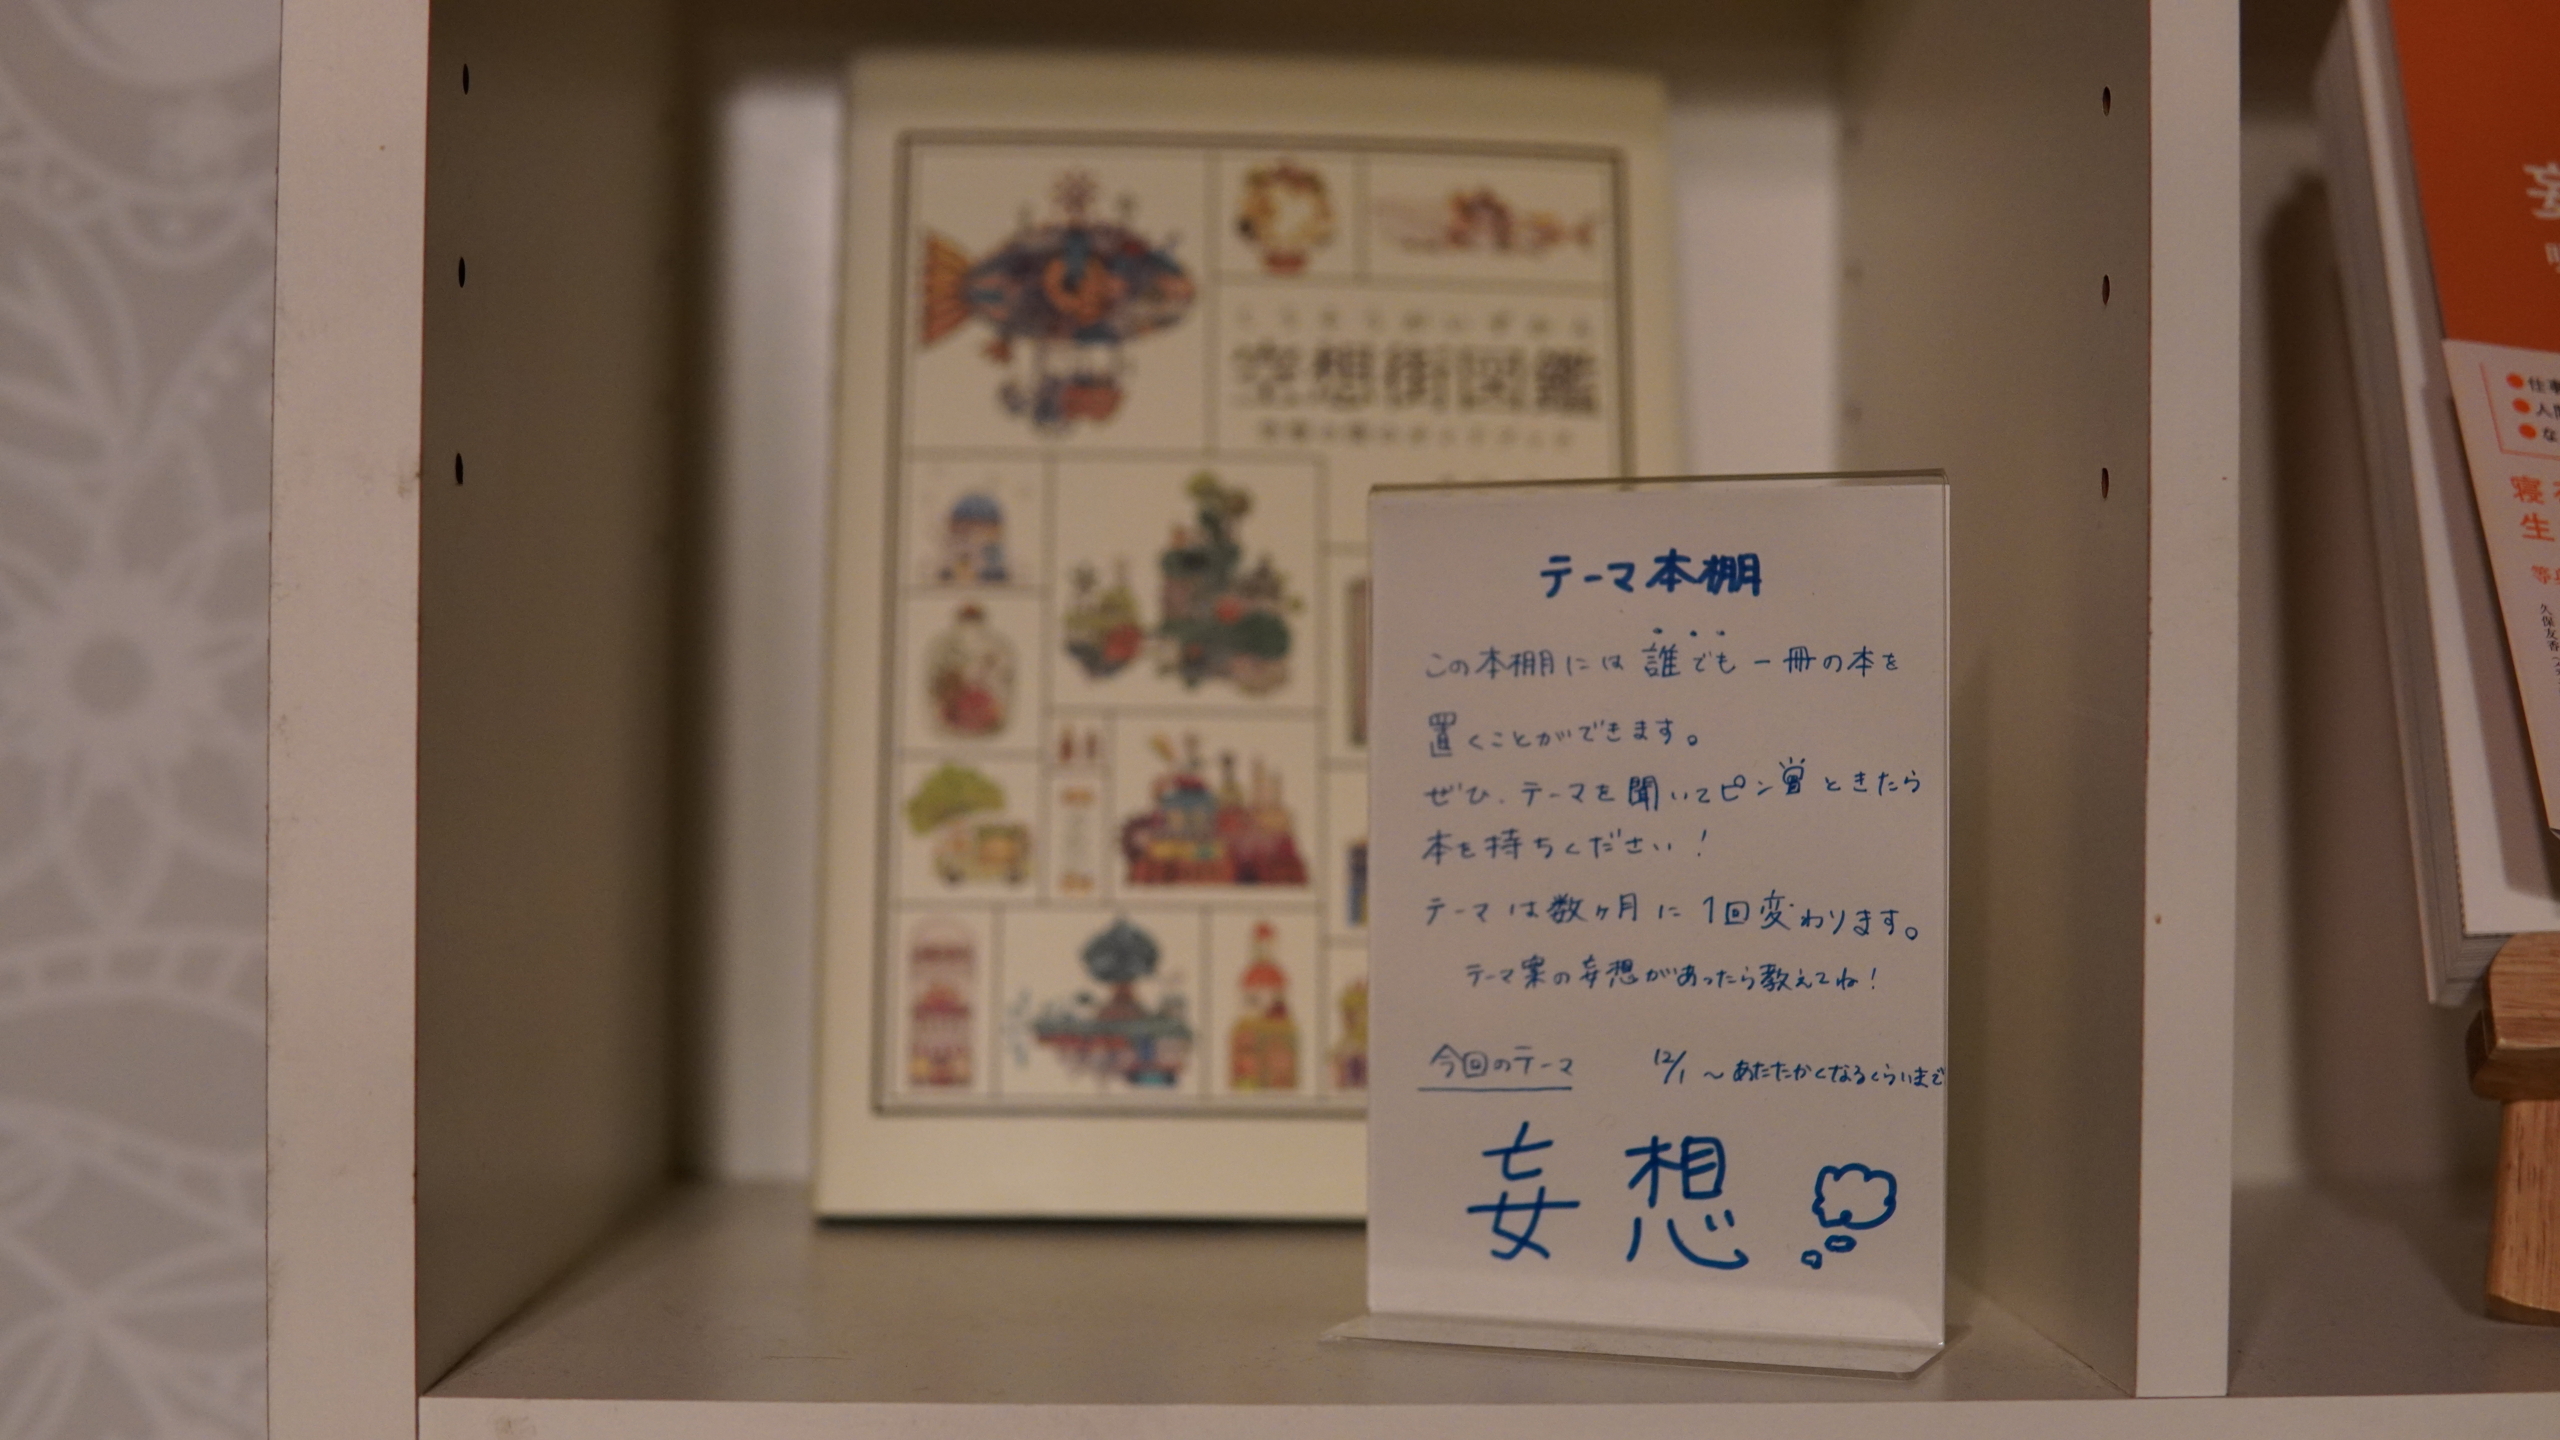 空想街図鑑
テーマ本棚
この本棚には誰でも一冊の本を
置くことができます。
ぜひ、テーマを聞いてピンときたら
本を持ちください！
テーマは数ヶ月に1回変わります。
テーマ案の妄想があったら教えてね！
今回のテーマ 12/1 〜あたたかくなるくらいまで
妄想
妄
●仕事
●人間
●な
寝
生
久保友香